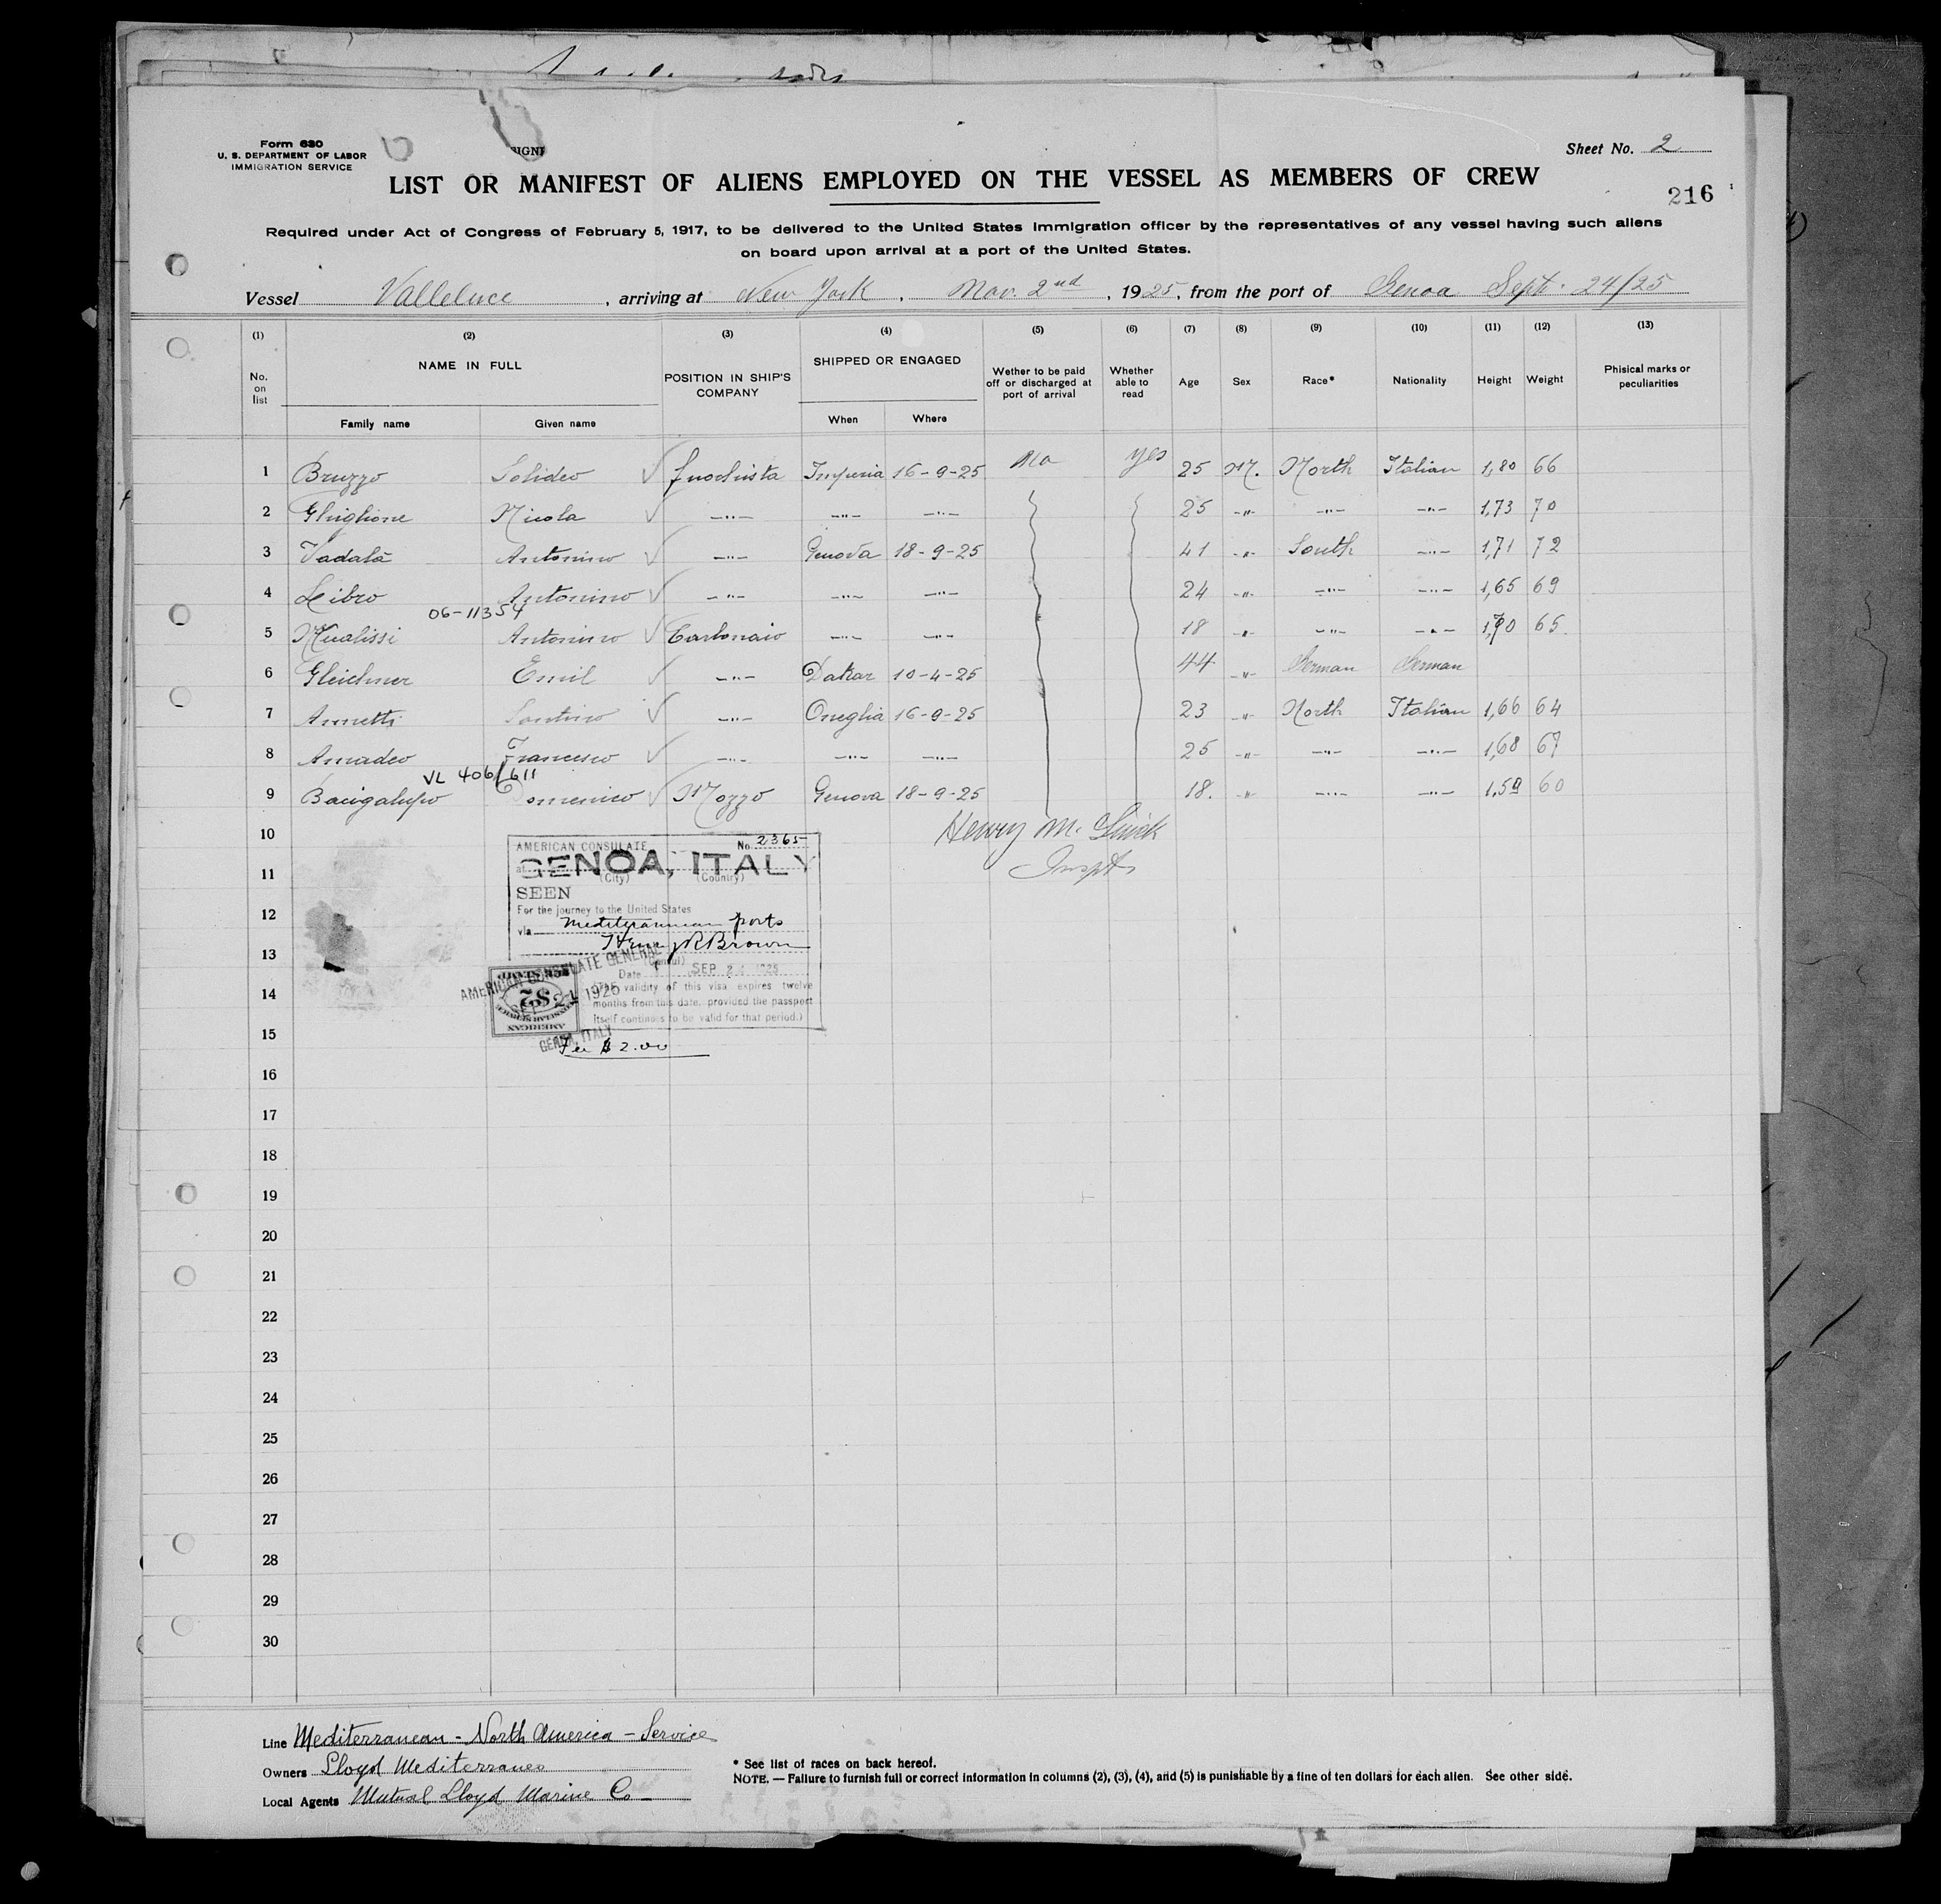 Form 630
U. S. DEPARTMENT OF LABOR
IMMIGRATION SERVICE
Sheet No. 2
LIST OR MANIFEST OF ALIENS EMPLOYED ON THE VESSEL AS MEMBERS OF CREW
216
Required under Act of Congress of February 5, 1917, to be delivered to the United States Immigration officer by the representatives of any vessel having such aliens
on board upon arrival at a port of the United States.
Vessel Valleluce, arriving at New York, Nov. 2nd, 1925, from the port of Genoa Sept. 24/25
(1) (2) (3) (4) (5) (6) (7) (8) (9) (10) (11) (12) (13)
No. on list NAME IN FULL POSITION IN SHIP'S COMPANY SHIPPED OR ENGAGED Wether to be paid off or discharged at port of arrival Whether able to read Age Sex Race* Nationality Height Weight Phisical marks or peculiarities
Family name Given name When Where
1 Bruzzo Solideo ✓ fuochista Imperia 16-9-25 No yes 25 M. North Italian 1,80 66
2 Ghiglione Nicola ✓ —"— —"— —"— 25 -"- —"— —"— 1,73 70
3 Vadalà Antonino ✓ —"— Genova 18-9-25 41 -"- South —"— 1,71 72
4 Libro Antonino ✓ —"— —"— —"— 24 -"- —"— —"— 1,65 69
06-11354
5 Antonino ✓ Carbonaio —"— —"— 18 -"- —"— —"— 1,70 65
6 Gleichner Emil ✓ —"— Dakar 10-4-25 44 -"- German German
7 Annetti Santino ✓ —"— Oneglia 16-9-25 23 -"- North Italian 1,66 64
8 Amadeo Francesco ✓ —"— —"— —"— 25 -"- —"— —"— 1,68 67
VL 406/611
9 Bacigalupo Domenico ✓ Mozzo Genova 18-9-25 18. -"- —"— —"— 1,59 60
10
Henry M.
11
Inspt.
12
13
14
15
16
17
18
19
20
21
22
23
24
25
26
27
28
29
30
AMERICAN CONSULATE No. 2365
at GENOA, ITALY
(City) (Country)
SEEN
For the journey to the United States
via Mediterranean ports
Henry R Brown
(Consul)
Date SEP 24 1925
validity of this visa expires twelve
months from this date, provided the passport
itself continues to be valid for that period.)
AMERICAN CONSULATE GENERAL
SEP 24 1925
GENOA, ITALY
$2
AMERICAN
Fee $ 2.00
Line Mediterranean - North America - Service
Owners Lloyd Mediterraneo
Local Agents Mutual Lloyd Marine Co
* See list of races on back hereof.
NOTE. — Failure to furnish full or correct information in columns (2), (3), (4), and (5) is punishable by a fine of ten dollars for each alien. See other side.